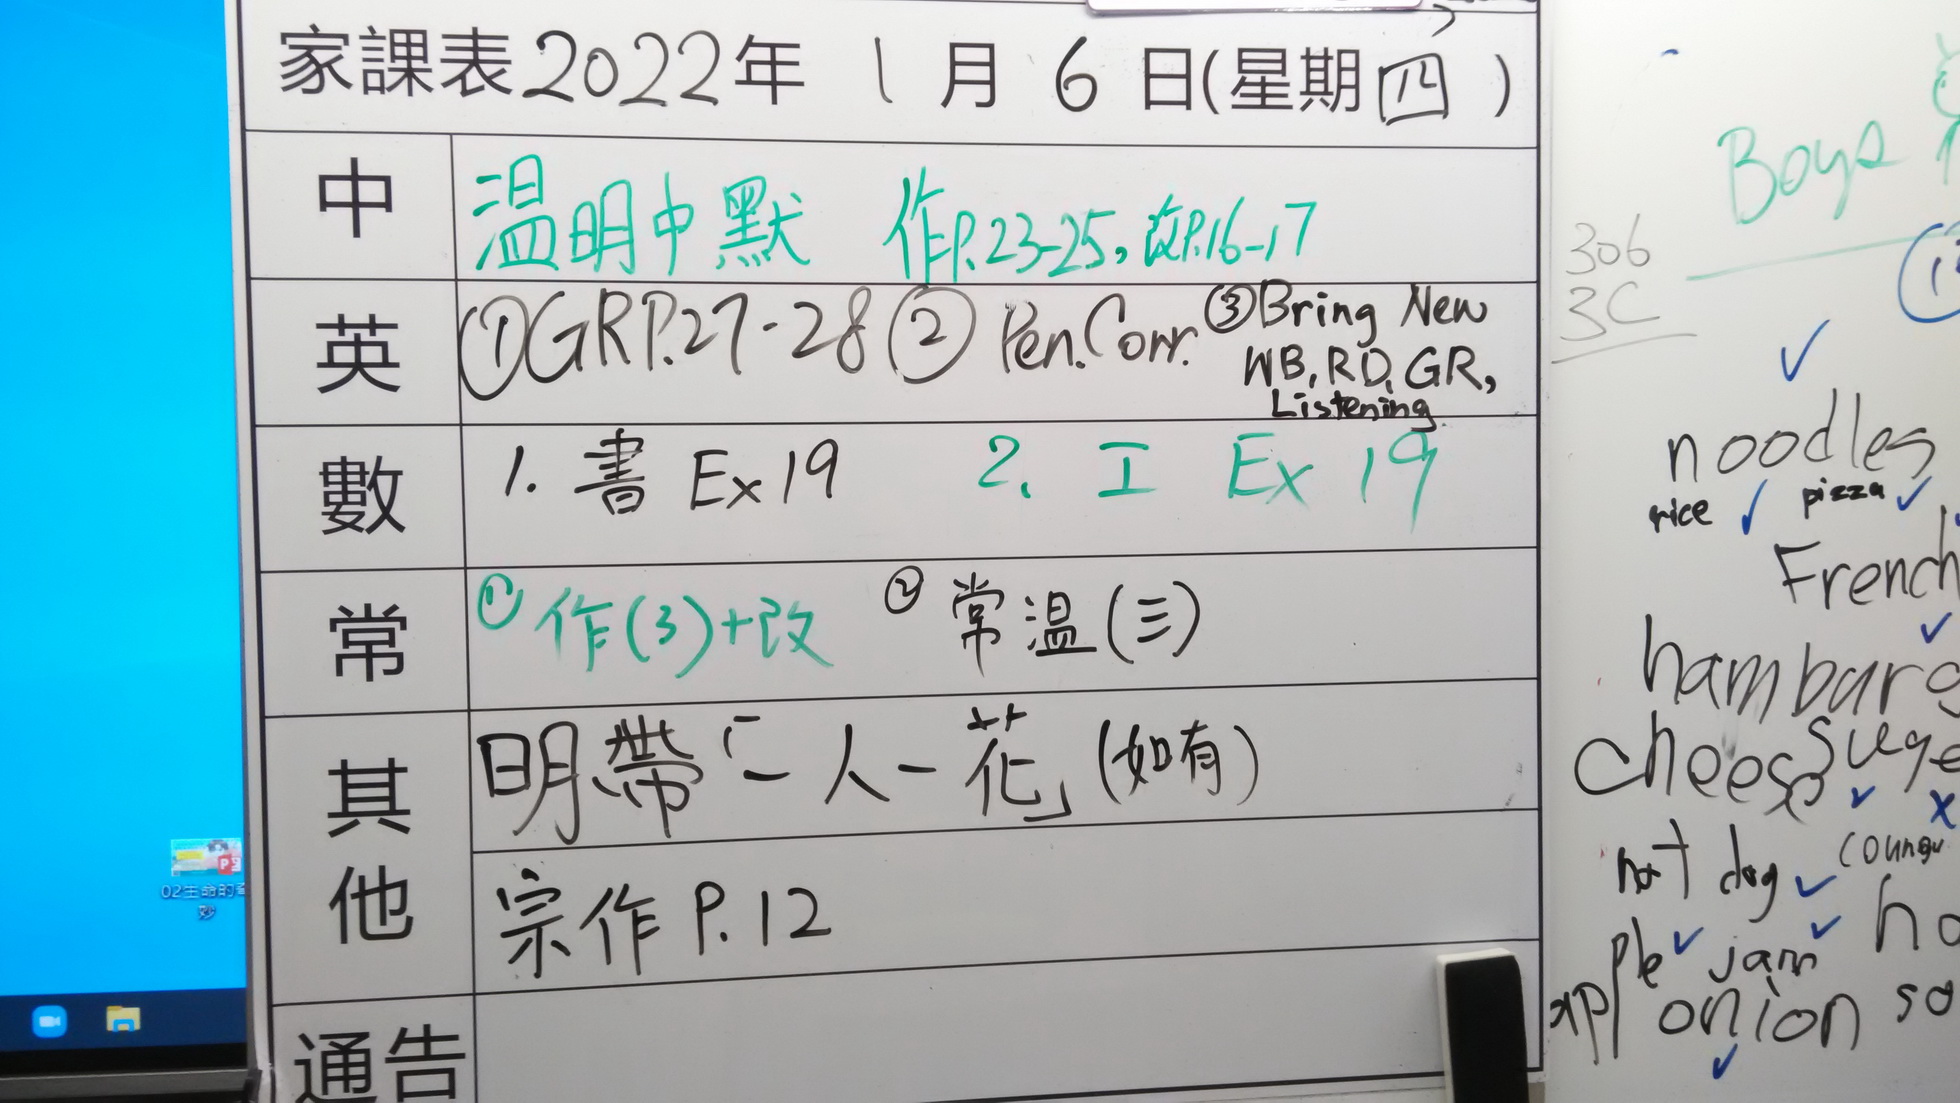 家課表2022年 1 月 6 日(星期四)
中
温明中默 作P.23-25,改P.16-17
英
①GRP.27-28 ② Pen.Corr. ③Bring New
WB, RD, GR,
Listening
數
1. 書 Ex 19 2. 工 Ex 19
常
① 作(3)+改 ② 常温(三)
其他
明帶「一人一花」(如有)
宗作 P.12
通告
02生命的奇
妙
Boys
306
3C
noodles
rice pizza
French
hamburg
cheese
hot dog
apple jam
onion